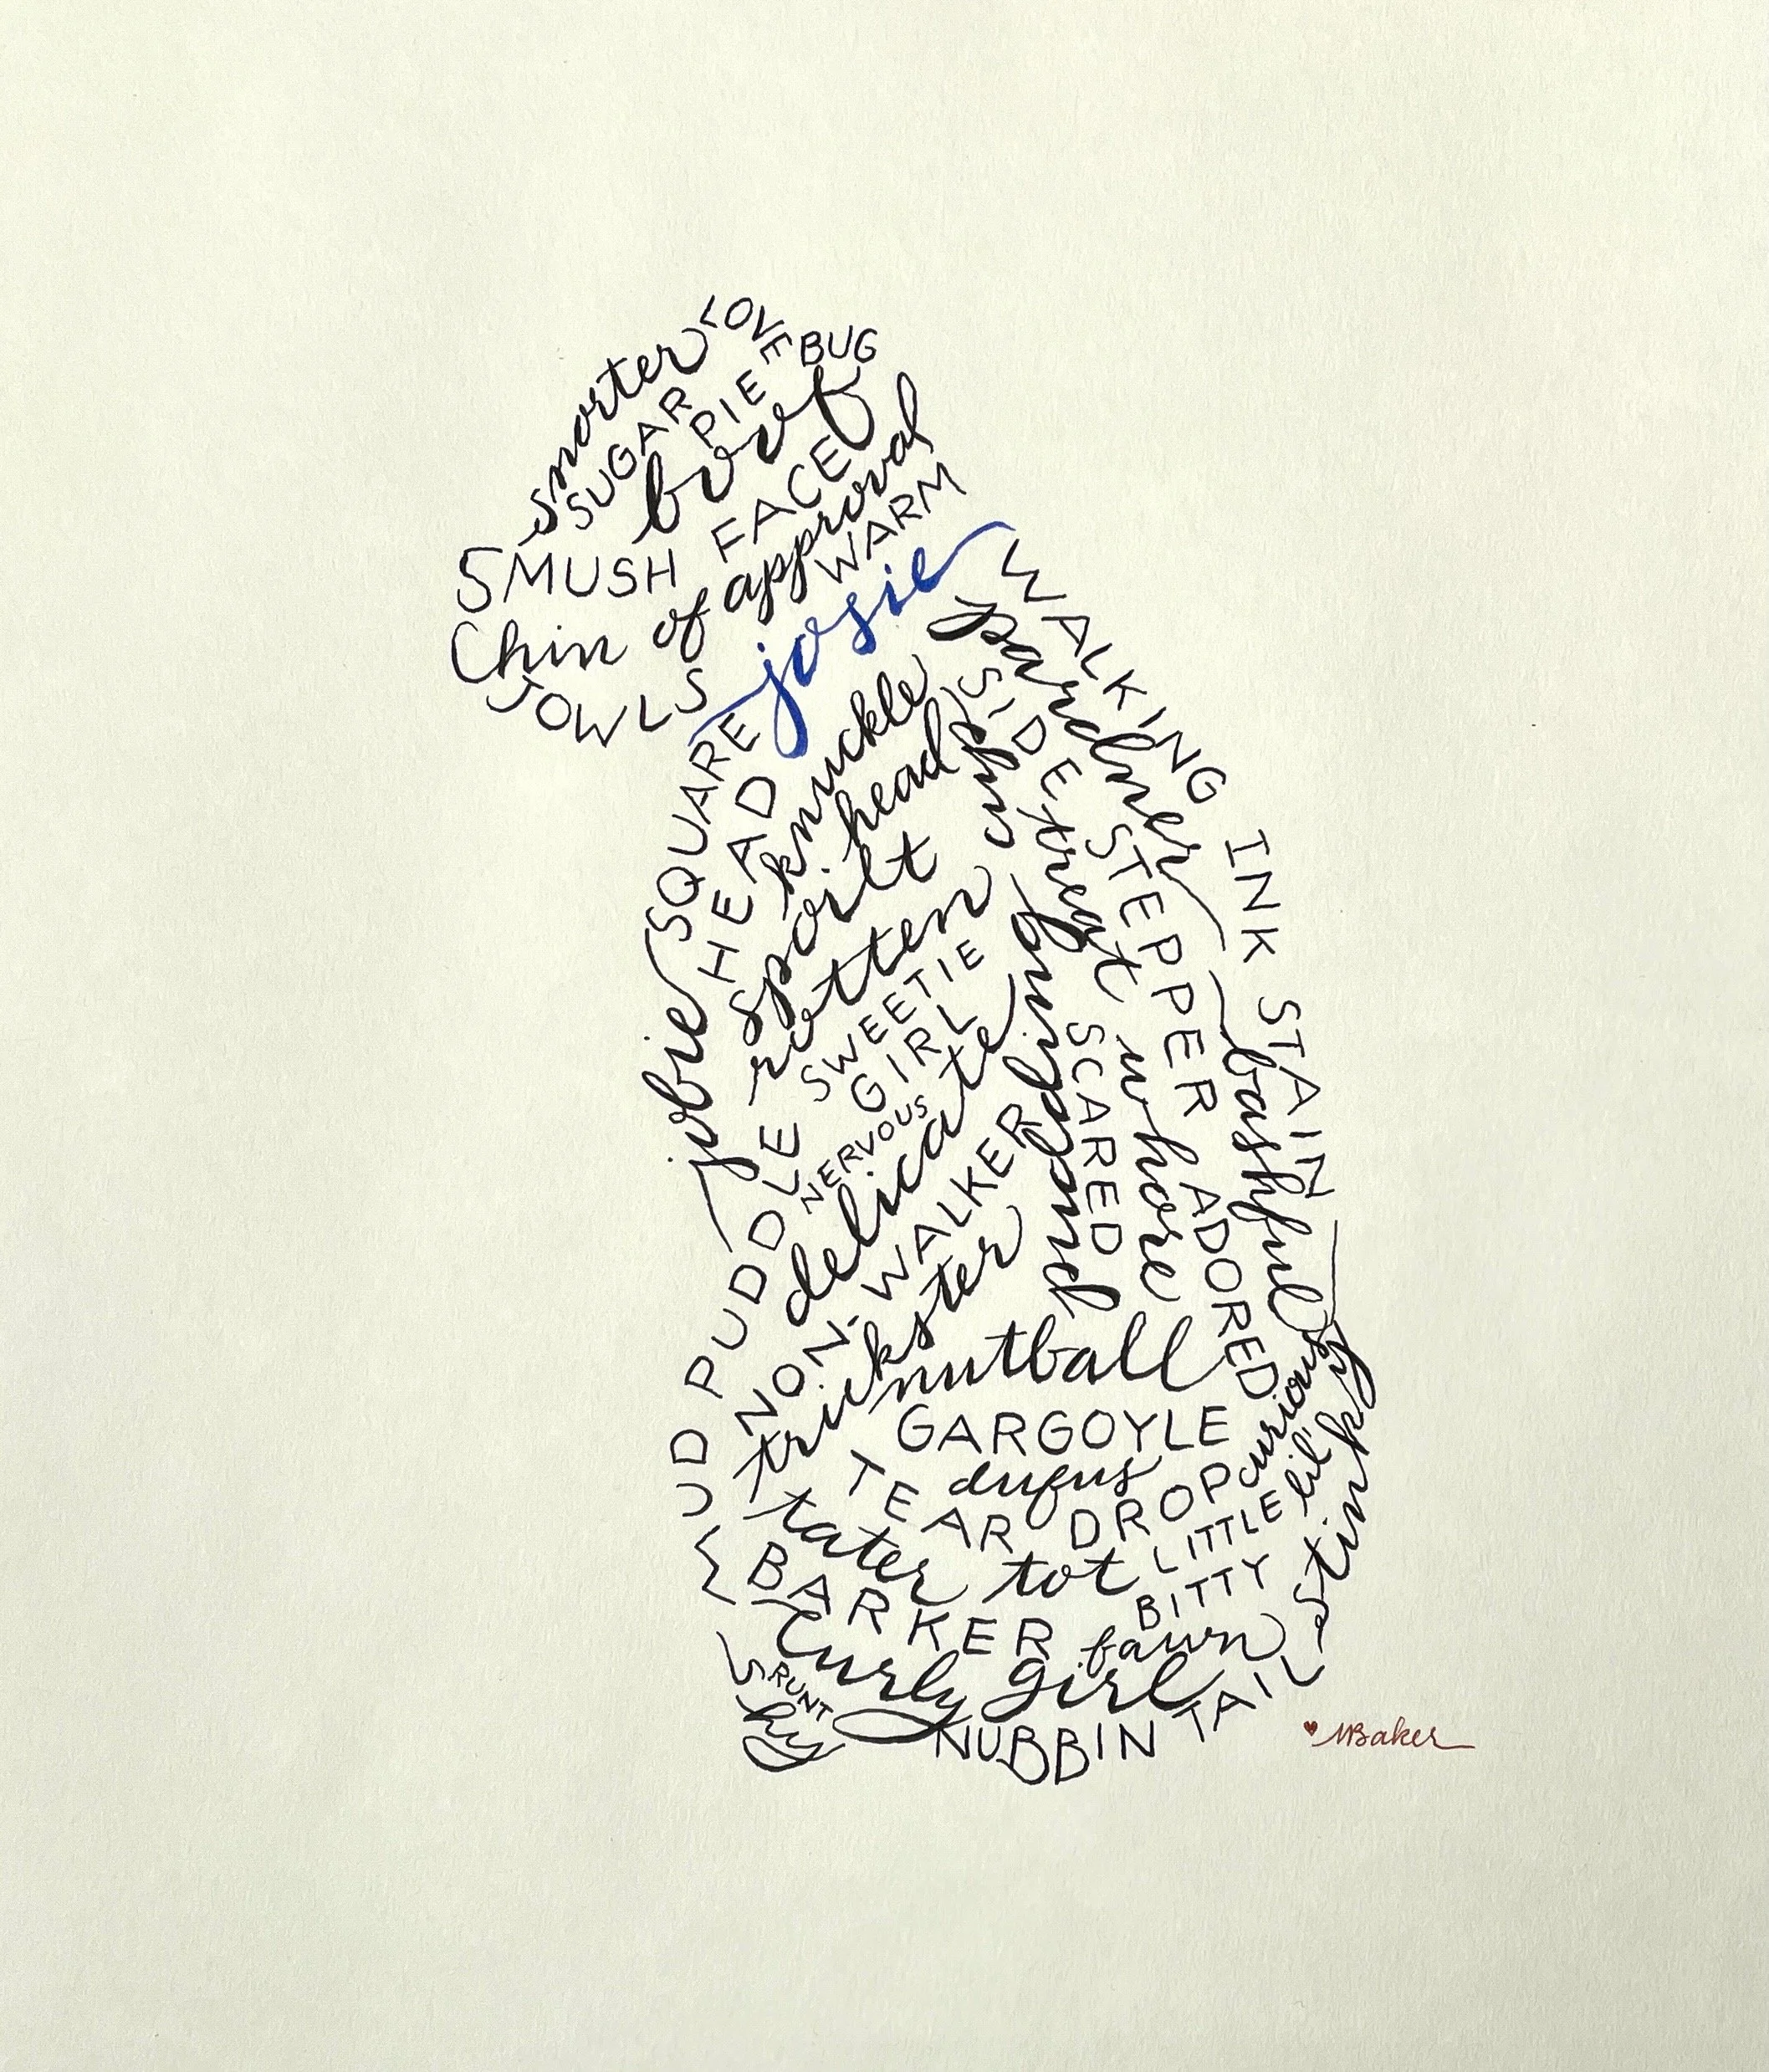 snorter
LOVE BUG
SUGAR PIE
borf
SMUSH FACE
Chin of approval
WARM
JOWLS
josie
SQUARE HEAD
knuckle head
WALKING INK STAIN
pardner
SIDE STEPPER
spoilt rotten
puppy
treat whore
jobie
SWEETIE GIRL
NERVOUS
delicate
pudding
SCARED
bashful
ADORED
PUDDLE
NON-WALKER
trickster
nutball
GARGOYLE
dufus
TEAR DROP
curious
lil' stinky
LITTLE BITTY
tater tot
BARKER
fawn
curly girl
RUNT
shy
NUBBIN TAIL
MBaker